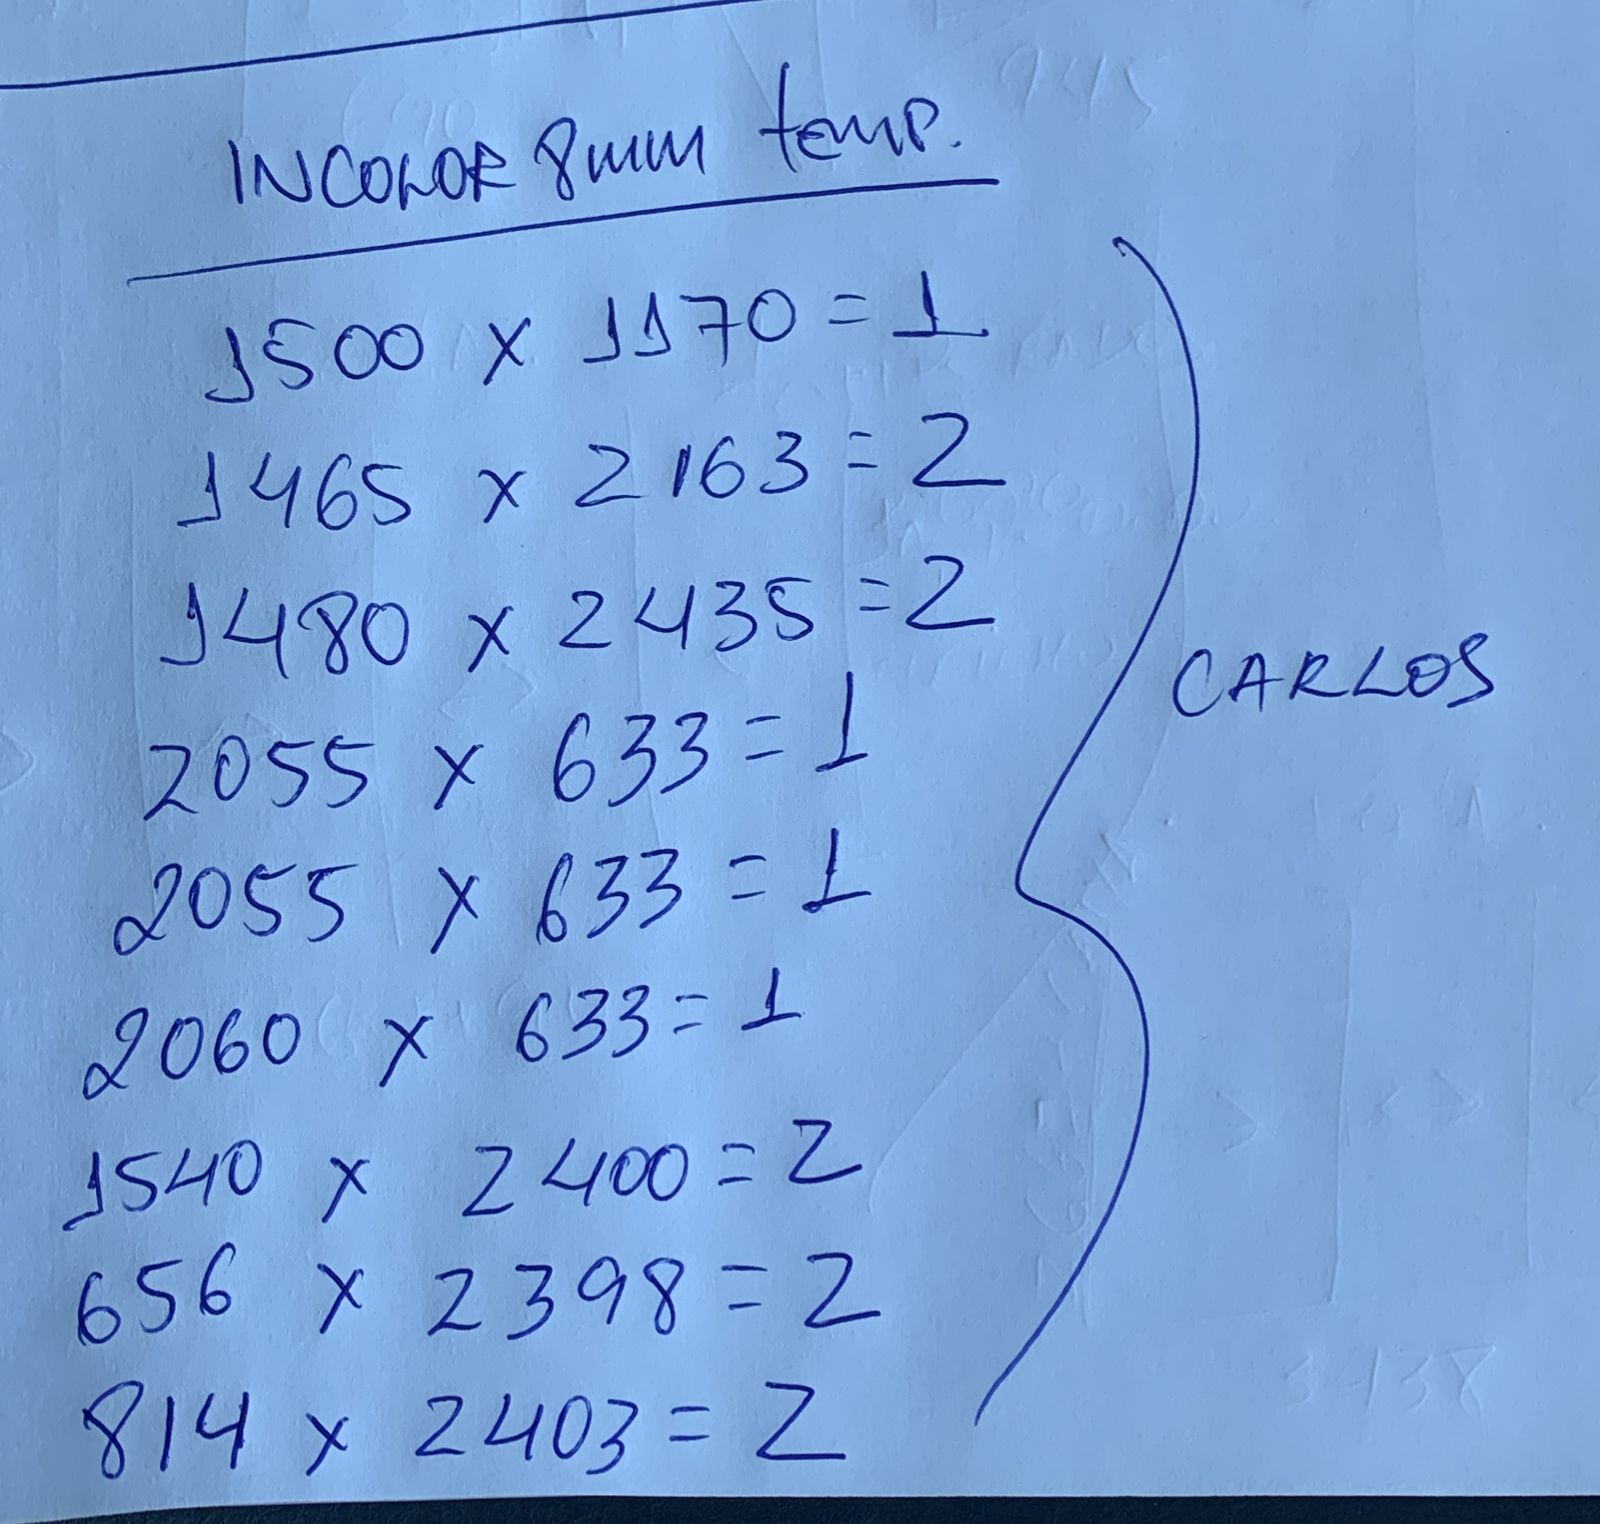 INCOLOR 8mm temp.
1500 x 1170 = 1
1465 x 2163 = 2
1480 x 2435 = 2
2055 x 633 = 1
2055 x 633 = 1
2060 x 633 = 1
1540 x 2400 = 2
656 x 2398 = 2
814 x 2403 = 2
CARLOS